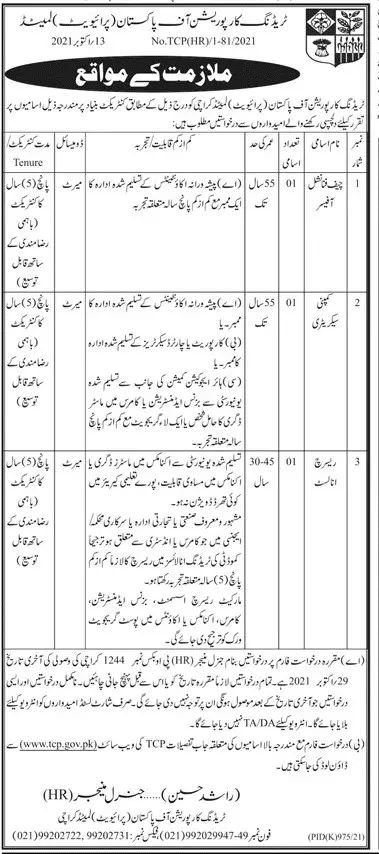 ٹریڈنگ کارپوریشن آف پاکستان (پرائیویٹ) لمیٹڈ
No.TCP(HR)/1-81/2021
13/اکتوبر 2021
ملازمت کے مواقع
ٹریڈنگ کارپوریشن آف پاکستان (پرائیویٹ) لمیٹڈ کراچی کو درج ذیل کے مطابق کنٹریکٹ بنیاد پر مندرجہ ذیل اسامیوں پر
تقرر کیلئے دلچسپی رکھنے والے امیدواروں سے درخواستیں مطلوب ہیں:
نمبر شمار
نام اسامی
تعداد اسامی
عمر کی حد
کم از کم قابلیت/تجربہ
ڈومیسائل
مدت کنٹریکٹ/ Tenure
1
چیف فنانشل
آفیسر
01
55 سال
تک
(اے) پیشہ ورانہ اکاؤنٹینٹس کے تسلیم شدہ ادارہ کا
ایک ممبر مع کم از کم پانچ سالہ متعلقہ تجربہ
میرٹ
پانچ (5) سال
کا کنٹریکٹ
(باہمی
رضامندی کے
ساتھ قابل
توسیع)
2
کمپنی
سیکریٹری
01
55 سال
تک
(اے) پیشہ ورانہ اکاؤنٹینٹس کے تسلیم شدہ ادارہ کا
ممبر۔ یا
(بی) کارپوریٹ یا چارٹرڈ سیکرٹریز کے تسلیم شدہ ادارہ
کا ممبر۔ یا
(سی) ہائر ایجوکیشن کمیشن کی جانب سے تسلیم شدہ
یونیورسٹی سے بزنس ایڈمنسٹریشن یا کامرس میں ماسٹر
ڈگری کا حامل شخص یا ایک لاء گریجویٹ مع کم از کم پانچ
سالہ متعلقہ تجربہ۔
میرٹ
پانچ (5) سال
کا کنٹریکٹ
(باہمی
رضامندی کے
ساتھ قابل
توسیع)
3
ریسرچ
انالسٹ
01
30-45
سال
تسلیم شدہ یونیورسٹی سے اکنامکس میں ماسٹرز ڈگری یا
اکنامکس میں مساوی قابلیت، پورے تعلیمی کیریئر میں
کوئی تھرڈ ڈویژن نہ ہو۔
مشہور و معروف صنعتی یا تجارتی ادارہ یا سرکاری محکمہ/
ایجنسی میں جو کامرس یا انڈسٹری سے متعلق ہو ترجیحاً
کموڈٹی کی ٹریڈنگ انالائسز میں ریسرچ کا لازماً کم از کم
(5) سالہ متعلقہ تجربہ رکھتا ہو۔
مارکیٹ ریسرچ اسسمنٹ، بزنس ایڈمنسٹریشن،
کامرس، اکنامکس یا اکاؤنٹس میں پوسٹ گریجویٹ
ورک کو ترجیح دی جائے گی۔
میرٹ
پانچ (5) سال
کا کنٹریکٹ
(باہمی
رضامندی کے
ساتھ قابل
توسیع)
(اے) مقررہ درخواست فارم پر درخواستیں بنام جنرل منیجر (HR) پی او بکس نمبر 1244 کراچی کی وصولی کی آخری تاریخ
29/اکتوبر 2021 ہے۔ تمام درخواستیں لازماً مقررہ تاریخ کو یا اس سے قبل پہنچ جانی چاہئیں۔ نامکمل درخواستیں اور ایسی
درخواستیں جو آخری تاریخ کے بعد موصول ہونگی ان پر توجہ نہیں دی جائے گی۔ صرف شارٹ لسٹڈ امیدواروں کو انٹرویو کیلئے
بلایا جائے گا۔ انٹرویو کیلئے TA/DA نہیں دیا جائے گا۔
(بی) درخواست فارم مع مندرجہ بالا اسامیوں کی متعلقہ جاب تفصیلات TCP کی ویب سائٹ (www.tcp.gov.pk) سے
ڈاؤن لوڈ کی جاسکتی ہیں۔
(راشد حسین).....جنرل منیجر (HR)
ٹریڈنگ کارپوریشن آف پاکستان (پرائیویٹ) لمیٹڈ کراچی
فون نمبر 49-99202947(021) فیکس نمبر: 99202731، 99202722(021)
(PID(K)975/21)